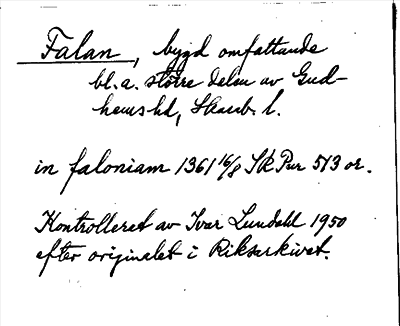 Falan, bygd omfattande
bl. a. större delen av Gud-
hems hd, Skarab. l.
in faloniam 1361 16/8 SkPur 513 or.
Kontrolleret av Ivar Lundahl 1950
efter originalet i Riksarkivet.